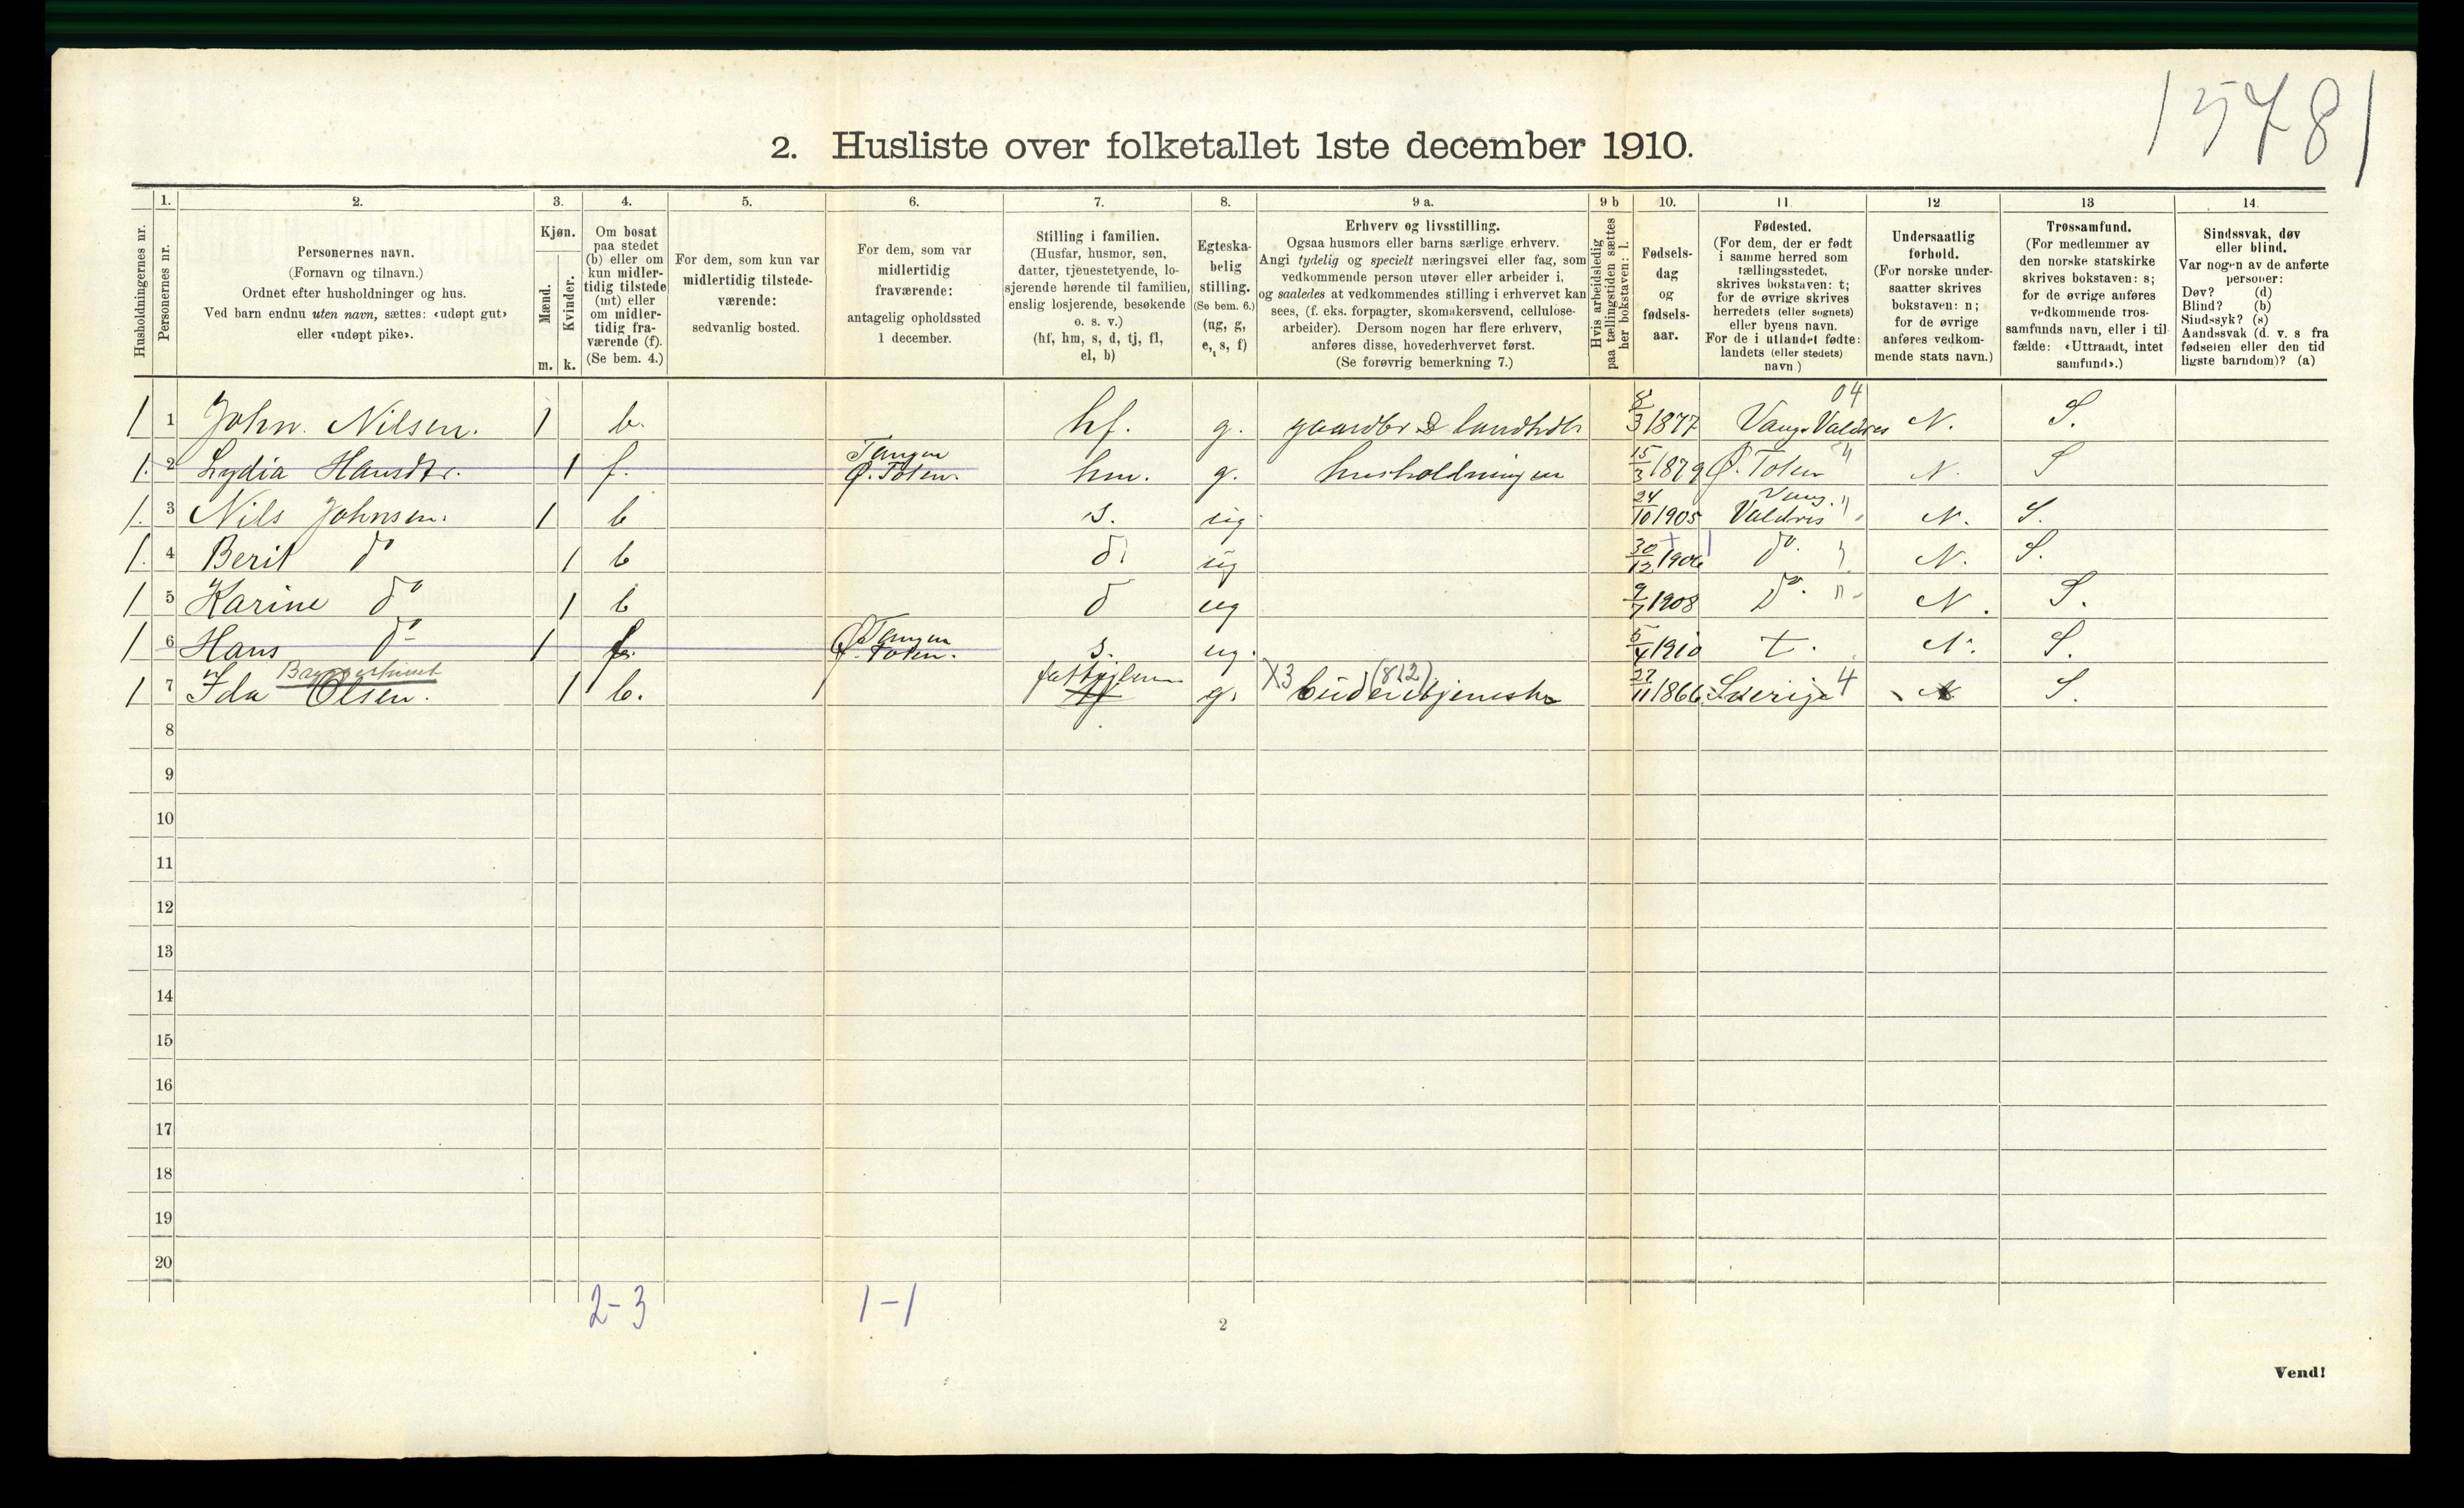 1578
2. Husliste over folketallet 1ste december 1910.
Husholdningernes nr.
1.
Personernes nr.
2.
Personernes navn.
(Fornavn og tilnavn.)
Ordnet efter husholdninger og hus.
Ved barn endnu uten navn, sættes: «udøpt gut»
eller «udøpt pike».
3.
Kjøn.
Mænd.
Kvinder.
m.
k.
4.
Om bosat
paa stedet
(b) eller om
kun midler-
tidig tilstede
(mt) eller
om midler-
tidig fra-
værende (f).
(Se bem. 4.)
5.
For dem, som kun var
midlertidig tilstede-
værende:
sedvanlig bosted.
6.
For dem, som var
midlertidig
fraværende:
antagelig opholdssted
1 december.
7.
Stilling i familien.
(Husfar, husmor, søn,
datter, tjenestetyende, lo-
sjerende hørende til familien,
enslig losjerende, besøkende
o. s. v.)
(hf, hm, s, d, tj, fl,
el, b)
8.
Egteska-
belig
stilling.
(Se bem. 6.)
(ug, g,
e, s, f)
9 a.
Erhverv og livsstilling.
Ogsaa husmors eller barns særlige erhverv.
Angi tydelig og specielt næringsvei eller fag, som
vedkommende person utøver eller arbeider i,
og saaledes at vedkommendes stilling i erhvervet kan
sees, (f. eks. forpagter, skomakersvend, cellulose-
arbeider). Dersom nogen har flere erhverv,
anføres disse, hovederhvervet først.
(Se forøvrig bemerkning 7.)
9 b
Hvis arbeidsledig
paa tællingstiden sættes
her bokstaven: l.
10.
Fødsels-
dag
og
fødsels-
aar.
11.
Fødested.
(For dem, der er født
i samme herred som
tællingsstedet,
skrives bokstaven: t;
for de øvrige skrives
herredets (eller sognets)
eller byens navn.
For de i utlandet fødte:
landets (eller stedets)
navn.)
12
Undersaatlig
forhold.
(For norske under-
saatter skrives
bokstaven: n;
for de øvrige
anføres vedkom-
mende stats navn.)
13
Trossamfund.
(For medlemmer av
den norske statskirke
skrives bokstaven: s;
for de øvrige anføres
vedkommende tros-
samfunds navn, eller i til-
fælde: «Uttraadt, intet
samfund».)
14.
Sindssvak, døv
eller blind.
Var nogen av de anførte
personer:
Døv? (d)
Blind? (b)
Sindssyk? (s)
Aandssvak (d. v. s. fra
fødselen eller den tid
ligste barndom)? (a)
1 1 John Nilsen. 1 b. hf. g. gaardbr & landhdl 8/3 1877 Vang Valdres 04 N. S.
1. 2 Lydia Hansdtr. 1 f. Tangen Ø. Toten. hm. g. husholdningen 15/3 1879 Ø. Toten " N. S
1. 3 Nils Johnsen. 1 b s. ug 24/10 1905 Vang. Valdres " N. S.
1. 4 Berit do 1 b d. ug 30/12 1906 do. " N. S.
1 5 Karine do 1 b d ug 9/7 1908 Do. " N. S.
1 6 Hans do 1 f. Tangen Ø. Toten. s. ug. 5/4 1910 t. N. S.
1 7 Ida Olsen. 1 b. tj g. X3 (812) budeie tjenestr 22/11 1866 Sverige 4 N S.
8
9
10
11
12
13
14
15
16
17
18
19
20
2-3
1-1
2
Vend!